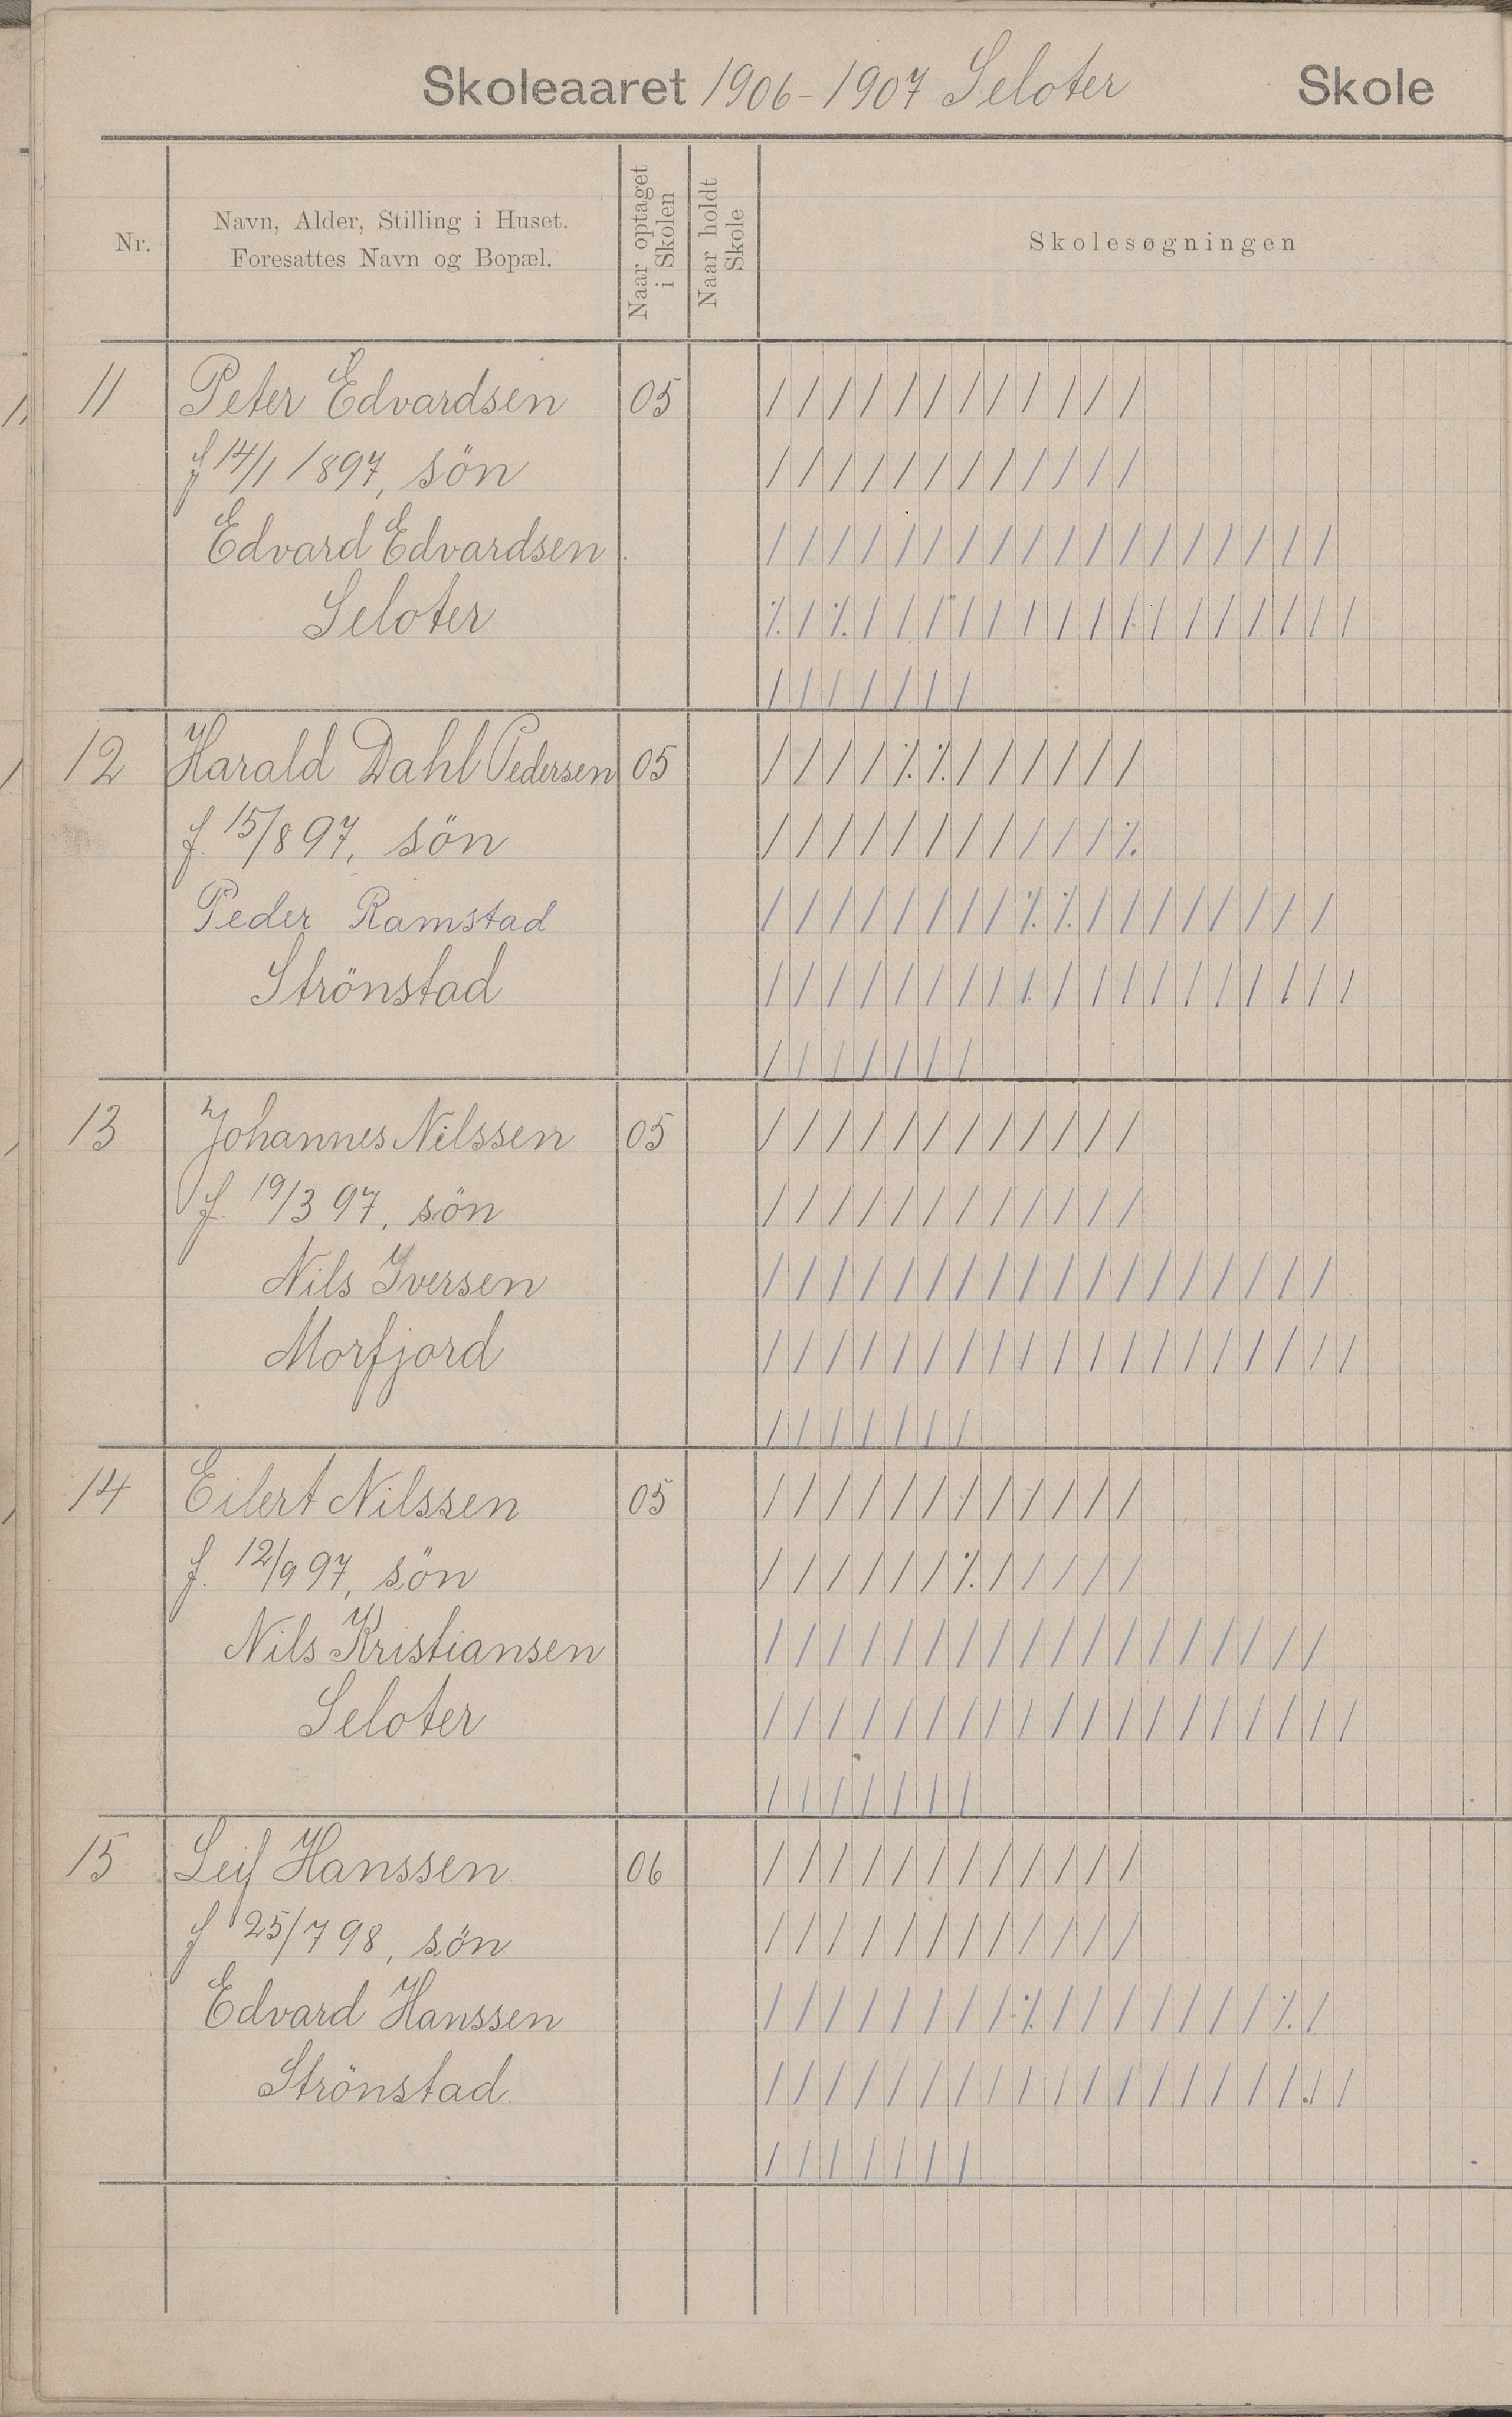 Skoleaaret 1906-1907 Seloter Skole
Nr.
Navn, Alder, Stilling i Huset.
Foresattes Navn og Bopæl.
Naar optaget
i Skolen
Naar holdt
Skole
Skolesøgningen
11 Peter Edvardsen 05 / / / / / / / / / / / /
f 14/1 1897, sön / / / / / / / / / / / /
Edvard Edvardsen / / / / / / / / / / / / / / / / / /
Seloter ⁒ / ⁒ / / / / / / / / / / / / / / / /
/ / / / / / /
12 Harald Dahl Pedersen 05 / / / / ⁒ ⁒ / / / / / /
f. 15/8 97, sön / / / / / / / / / / / ⁒
Peder Ramstad / / / / / / / / ⁒ ⁒ / / / / / / / /
Strönstad / / / / / / / / / / / / / / / / / / /
/ / / / / / /
13 Johannes Nilssen 05 / / / / / / / / / / / /
f. 19/3 97, sön / / / / / / / / / / / /
Nils Iversen / / / / / / / / / / / / / / / / / /
Morfjord / / / / / / / / / / / / / / / / / / /
/ / / / / / /
14 Eilert Nilssen 05 / / / / / / / / / / / /
f. 12/9 97, sön / / / / / / ⁒ / / / / /
Nils Kristiansen / / / / / / / / / / / / / / / / / /
Seloter / / / / / / / / / / / / / / / / / / /
/ / / / / / /
15 Leif Hanssen 06 / / / / / / / / / / / /
f 25/7 98, sön / / / / / / / / / / / /
Edvard Hanssen / / / / / / / / ⁒ / / / / / / / ⁒ /
Strönstad. / / / / / / / / / / / / / / / / / / /
/ / / / / / /